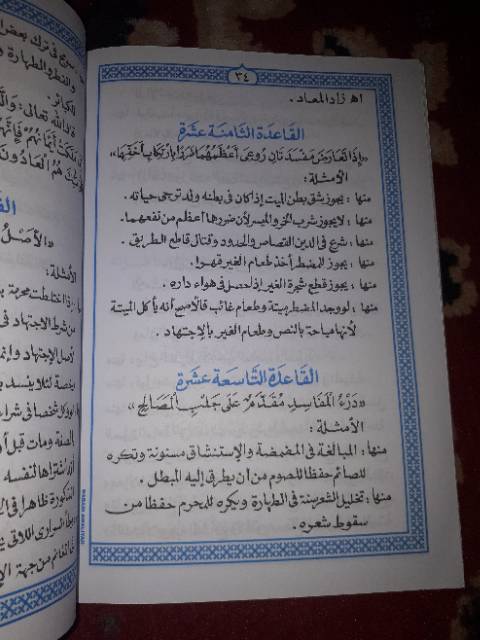 ٣٤
اه زاد المعاد .
القاعدة الثامنة عشرة
«إذا تعارض مفسدتان روعي أعظمهما ضررا بارتكاب أخفهما»
الأمثلة:
منها : يجوز شق بطن الميت إذا كان في بطنه ولد ترجى حياته .
منها : لا يجوز شرب الخمر والميسر لأن ضررهما أعظم من نفعهما .
منها : شرع في الدين القصاص والحدود وقتال قاطع الطريق .
منها : يجوز للمضطر أخذ طعام الغير قهرا .
منها : يجوز قطع شجرة الغير إذا حصل في هواء داره .
منها : لو وجد المضطر ميتة وطعام غائب فالأصح أنه يأكل الميتة
لأنها مباحة بالنص وطعام الغير بالاجتهاد .
القاعدة التاسعة عشرة
«درء المفاسد مقدم على جلب المصالح»
الأمثلة :
منها : المبالغة في المضمضة والاستنشاق مسنونة وتكره
للصائم حفظا للصوم من أن يطرق إليه المبطل .
منها : تخليل الشعر سنة في الطهارة ويكره للمحرم حفظا من
سقوط شعره .
في ترك بعض
والطهارة
للكبائر .
قال الله تعالى:
هم العادون
«الأصل
الأمثلة:
من شرط الاجتهاد